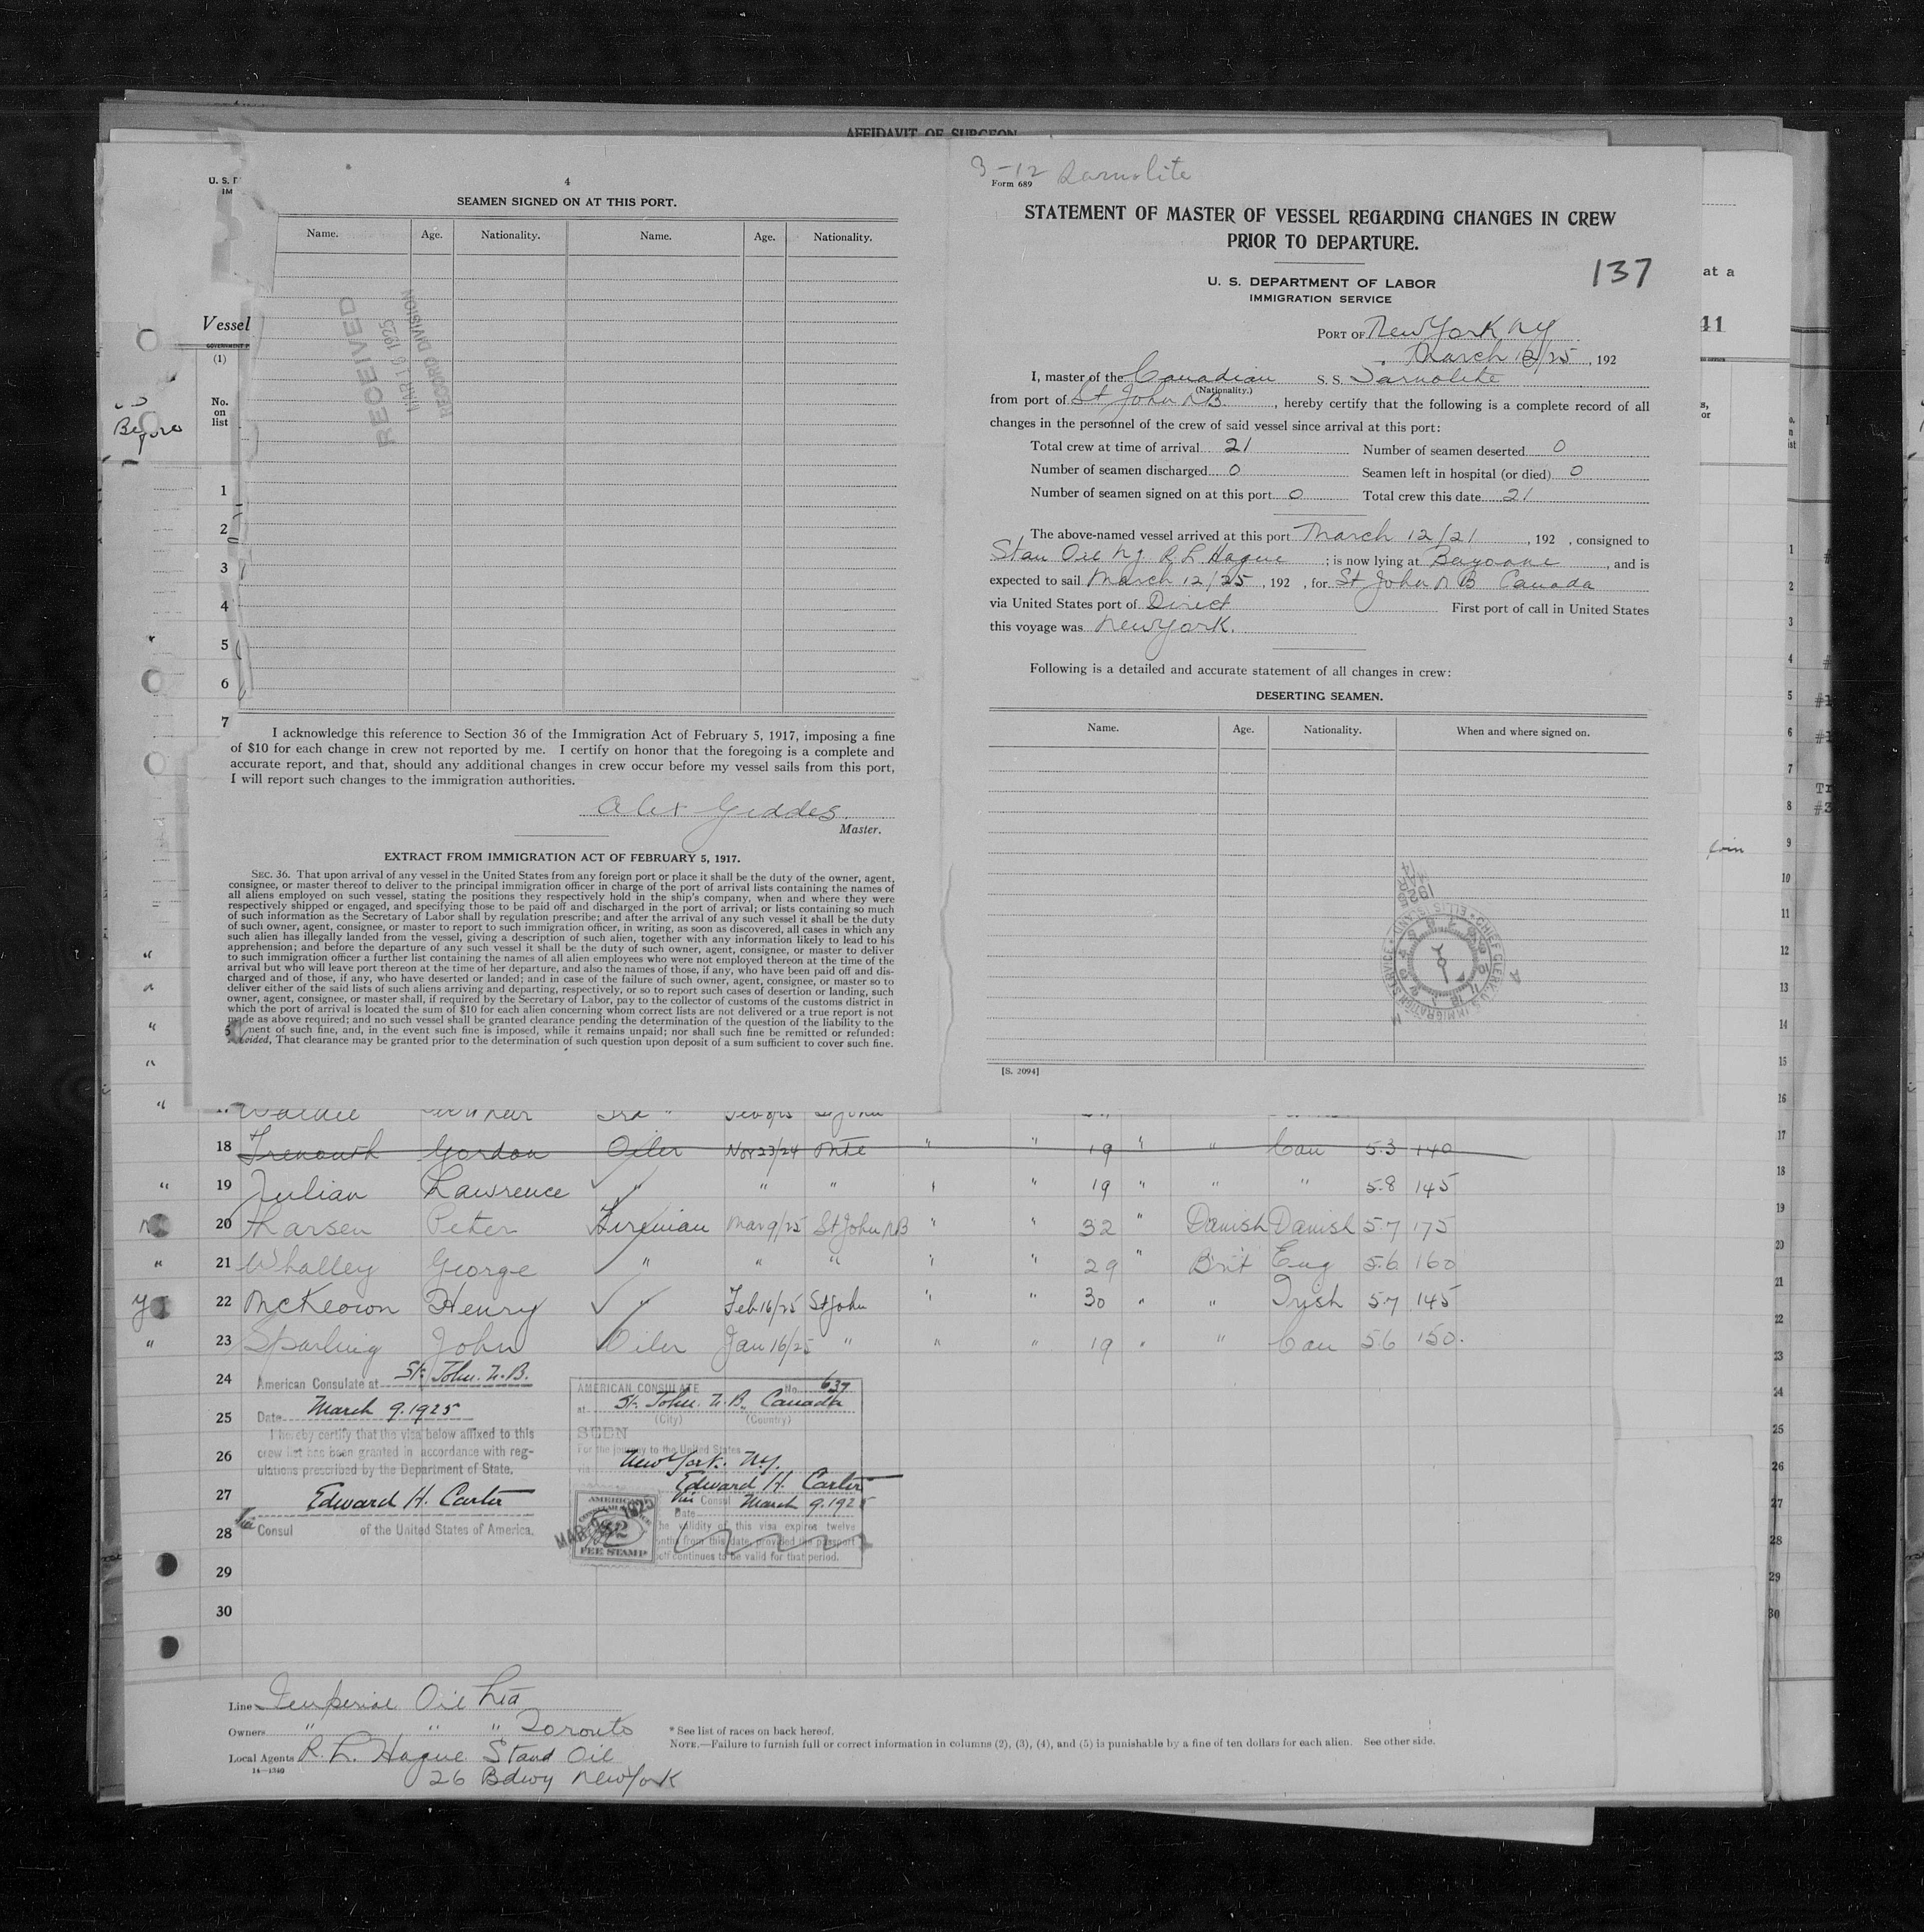 AFFIDAVIT OF SURGEON
4
SEAMEN SIGNED ON AT THIS PORT.
Name. Age. Nationality. Name. Age. Nationality.
RECEIVED
MAR 16 1925
RECORD DIVISION
U. S. D
IM
Vessel
(1)
No.
on
list
Before
1
2
3
4
5
6
7
I acknowledge this reference to Section 36 of the Immigration Act of February 5, 1917, imposing a fine
of $10 for each change in crew not reported by me. I certify on honor that the foregoing is a complete and
accurate report, and that, should any additional changes in crew occur before my vessel sails from this port,
I will report such changes to the immigration authorities.
Alex Geddes
Master.
EXTRACT FROM IMMIGRATION ACT OF FEBRUARY 5, 1917.
SEC. 36. That upon arrival of any vessel in the United States from any foreign port or place it shall be the duty of the owner, agent,
consignee, or master thereof to deliver to the principal immigration officer in charge of the port of arrival lists containing the names of
all aliens employed on such vessel, stating the positions they respectively hold in the ship's company, when and where they were
respectively shipped or engaged, and specifying those to be paid off and discharged in the port of arrival; or lists containing so much
of such information as the Secretary of Labor shall by regulation prescribe; and after the arrival of any such vessel it shall be the duty
of such owner, agent, consignee, or master to report to such immigration officer, in writing, as soon as discovered, all cases in which any
such alien has illegally landed from the vessel, giving a description of such alien, together with any information likely to lead to his
apprehension; and before the departure of any such vessel it shall be the duty of such owner, agent, consignee, or master to deliver
to such immigration officer a further list containing the names of all alien employees who were not employed thereon at the time of the
arrival but who will leave port thereon at the time of her departure, and also the names of those, if any, who have been paid off and dis-
charged and of those, if any, who have deserted or landed; and in case of the failure of such owner, agent, consignee, or master so to
deliver either of the said lists of such aliens arriving and departing, respectively, or so to report such cases of desertion or landing, such
owner, agent, consignee, or master shall, if required by the Secretary of Labor, pay to the collector of customs of the customs district in
which the port of arrival is located the sum of $10 for each alien concerning whom correct lists are not delivered or a true report is not
made as above required; and no such vessel shall be granted clearance pending the determination of the question of the liability to the
ment of such fine, and, in the event such fine is imposed, while it remains unpaid; nor shall such fine be remitted or refunded:
vided, That clearance may be granted prior to the determination of such question upon deposit of a sum sufficient to cover such fine.
3-12 Sarnolite
Form 689
STATEMENT OF MASTER OF VESSEL REGARDING CHANGES IN CREW
PRIOR TO DEPARTURE.
137
U. S. DEPARTMENT OF LABOR
IMMIGRATION SERVICE
PORT OF New York NY
March 12/25, 192
I, master of the Canadian S. S. Sarnolite
(Nationality.)
from port of St John NB, hereby certify that the following is a complete record of all
changes in the personnel of the crew of said vessel since arrival at this port:
Total crew at time of arrival 21 Number of seamen deserted 0
Number of seamen discharged 0 Seamen left in hospital (or died) 0
Number of seamen signed on at this port 0 Total crew this date 21
The above-named vessel arrived at this port March 12/21, 192 , consigned to
Stan Oil NJ. R L Hague; is now lying at Bayonne, and is
expected to sail March 12/25, 192 , for St John N B Canada
via United States port of Direct First port of call in United States
this voyage was New York.
Following is a detailed and accurate statement of all changes in crew:
DESERTING SEAMEN.
Name. Age. Nationality. When and where signed on.
CHIEF CLERK, U. S. IMMIGRATION SERVICE ELLIS ISLAND
1925
[S. 2094]
at a
41
Wallace Arthur 3rd " Feb 8/25 St John
18 Trenouth Gordon Oiler Nov 23/24 Mte " " 19 " " Can 5.3 140
" 19 Julian Lawrence " " " " " 19 " " " 5.8 145
20 Larsen Peter Fireman Mar 9/25 St John NB " " 32 " Danish Danish 5.7 175
" 21 Whalley George " " " " " 29 " Brit Eng 5.6 160
22 McKeown Henry " Feb 16/25 St John " " 30 " " Irish 5.7 145
" 23 Sparling John Oiler Jan 16/25 " " " 19 " " Can 5.6 150.
24
25
26
27
28
29
30
American Consulate at St. John. N.B.
Date March 9. 1925
I hereby certify that the visa below affixed to this
crew list has been granted in accordance with reg-
ulations prescribed by the Department of State.
Edward H. Carter
Vice Consul of the United States of America.
AMERICAN CONSULATE No. 637
at St. John. N.B. Canada
(City) (Country)
SEEN
For the journey to the United States
via New York. N.Y.
Edward H. Carter
Vice Consul
Date March 9. 1925
The validity of this visa expires twelve
months from this date, provided the passport
itself continues to be valid for that period.
AMERICAN
$2
FEE STAMP
MAR 9 1925
Line Imperial Oil Ltd
Owners " " " Toronto
Local Agents R. L. Hague Stand Oil
26 Bdwy New York
14—1240
* See list of races on back hereof.
NOTE.—Failure to furnish full or correct information in columns (2), (3), (4), and (5) is punishable by a fine of ten dollars for each alien. See other side.